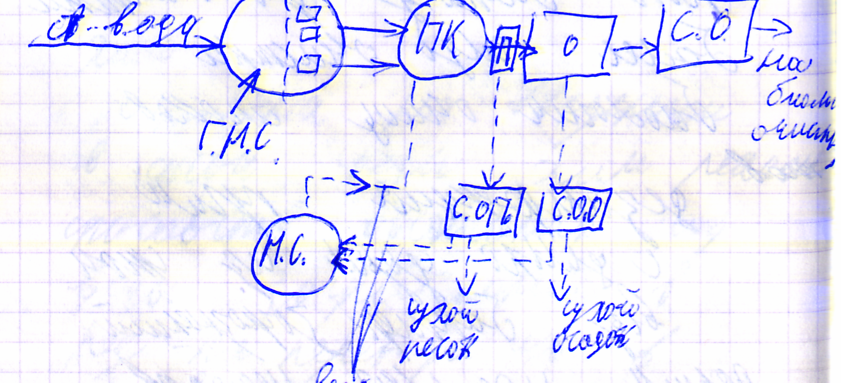 вода
ПК
П
О
С.О.
на
биол.
очистк
Г.Н.С.
С.ОП
С.О.О
Н.С.
сухой
песок
сухой
осадок